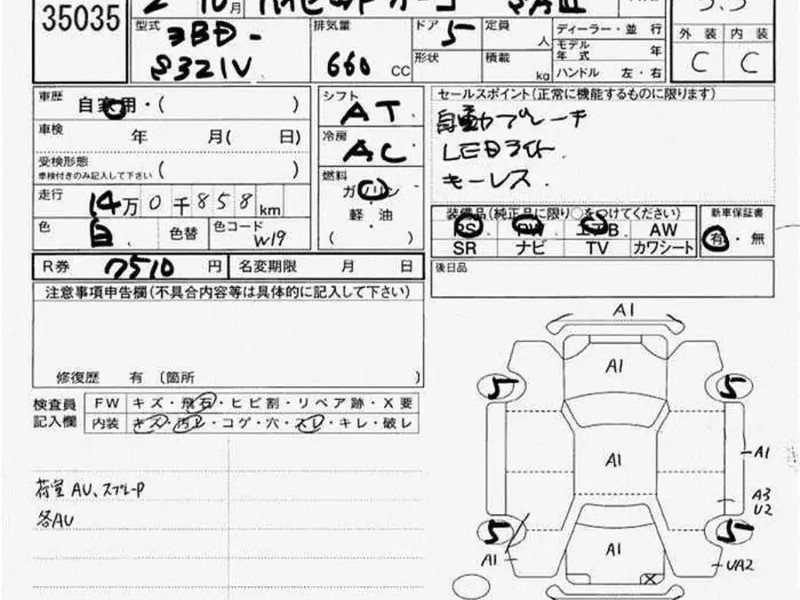 35035
2 10月
型式 3BD-
S321V
排気量 660 CC
ドア 5
形状
定員 人
積載 kg
ディーラー・並行
モデル年式 年
ハンドル 左・右
外装 内装
C C
車歴 自家用・( )
車検 年 月( 日)
受検形態
車検付きのみ記入して下さい ( )
走行 14万 0千858 km
色 白 色替 色コード W19
シフト AT
冷房 AC
燃料 ガソリン
軽・油
( )
セールスポイント(正常に機能するものに限ります)
自動ブレーキ
LEDライト
キーレス
装備品(純正品に限り○をつけてください)
PS PW エアB AW
SR ナビ TV カワシート
新車保証書
有・無
R券 7510 円 名変期限 月 日
後日品
注意事項申告欄(不具合内容等は具体的に記入して下さい)
修復歴 有 〔箇所 〕
検査員記入欄
FW キズ・飛石・ヒビ割・リペア跡・X要
内装 キズ・汚レ・コゲ・穴・スレ・キレ・破レ
荷室AU、スプレーP
各AU
A1
A1
5 5
A1
A1
A3
U2
5 5
A1
A1
UA2
X